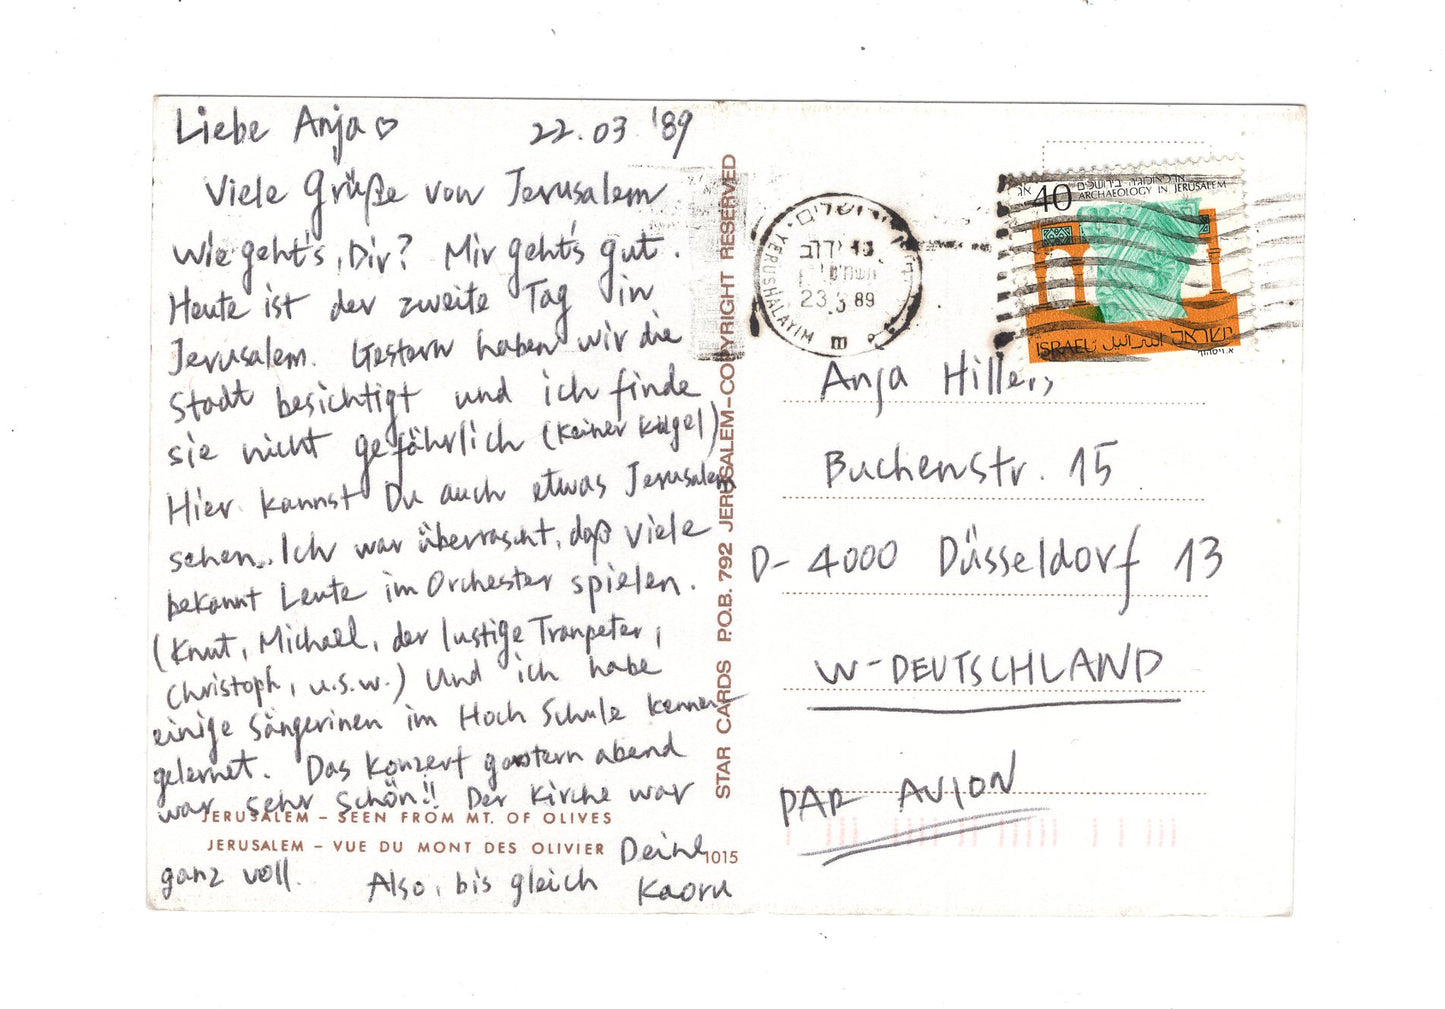 Liebe Anja ♡ 22.03.'89
Viele Grüße von Jerusalem
Wie geht's, Dir? Mir geht's gut.
Heute ist der zweite Tag in
Jerusalem. Gestern haben wir die
Stadt besichtigt und ich finde
sie nicht gefährlich (Keiner Kugel)
Hier kannst Du auch etwas Jerusalem
sehen. Ich war überrascht, daß viele
bekannt Leute im Orchester spielen.
(Knut, Michael, der lustige Trompeter,
Christoph, u.s.w.) Und ich habe
einige Sängerinen im Hoch Schule kennen
gelernet. Das Konzert gestern abend
war sehr schön!! Der Kirche war
ganz voll.
Also, bis gleich
Deine
Kaoru
JERUSALEM – SEEN FROM MT. OF OLIVES
JERUSALEM – VUE DU MONT DES OLIVIER
1015
STAR CARDS P.O.B. 792 JERUSALEM–COPYRIGHT RESERVED
ירושלים
YERUSHALAYIM
23.3.89
40 אג
ארכיאולוגיה בירושלים
ARCHAEOLOGY IN JERUSALEM
ISRAEL اسرائيل ישראל
Anja Hillers
Buchenstr. 15
D-4000 Düsseldorf 13
W-DEUTSCHLAND
PAR AVION